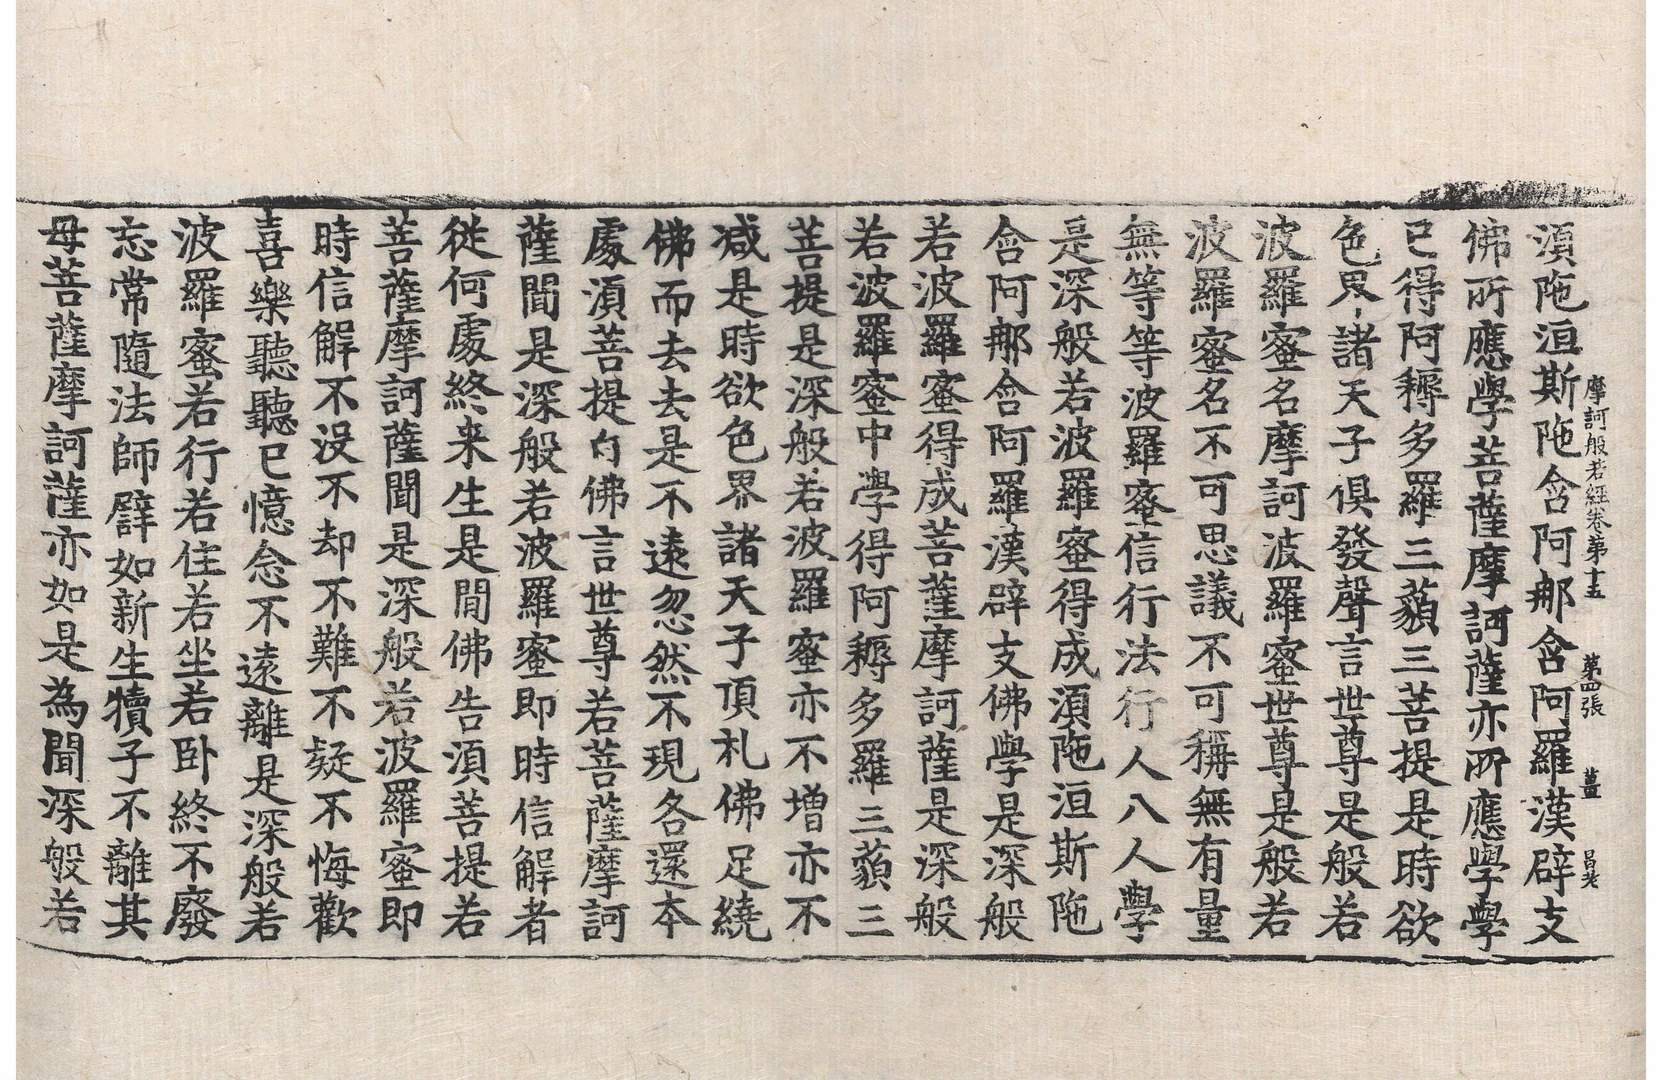 摩訶般若經卷第十五 第四張 薑 呂老
湏陁洹斯陁含阿那含阿羅漢辟支
佛所應學菩薩摩訶薩亦所應學學
已得阿耨多羅三藐三菩提是時欲
色界諸天子俱發聲言世尊是般若
波羅蜜名摩訶波羅蜜世尊是般若
波羅蜜名不可思議不可稱無有量
無等等波羅蜜信行法行人八人學
是深般若波羅蜜得成湏陁洹斯陁
含阿那含阿羅漢辟支佛學是深般
若波羅蜜得成菩薩摩訶薩是深般
若波羅蜜中學得阿耨多羅三藐三
菩提是深般若波羅蜜亦不增亦不
减是時欲色界諸天子頂札佛足繞
佛而去去是不遠忽然不現各還本
處湏菩提白佛言世尊若菩薩摩訶
薩聞是深般若波羅蜜即時信解者
從何處終来生是間佛告湏菩提若
菩薩摩訶薩聞是深般若波羅蜜即
時信解不没不却不難不疑不悔歡
喜樂聽聽已憶念不遠離是深般若
波羅蜜若行若住若坐若卧終不廢
忘常隨法師譬如新生犢子不離其
母菩薩摩訶薩亦如是為聞深般若